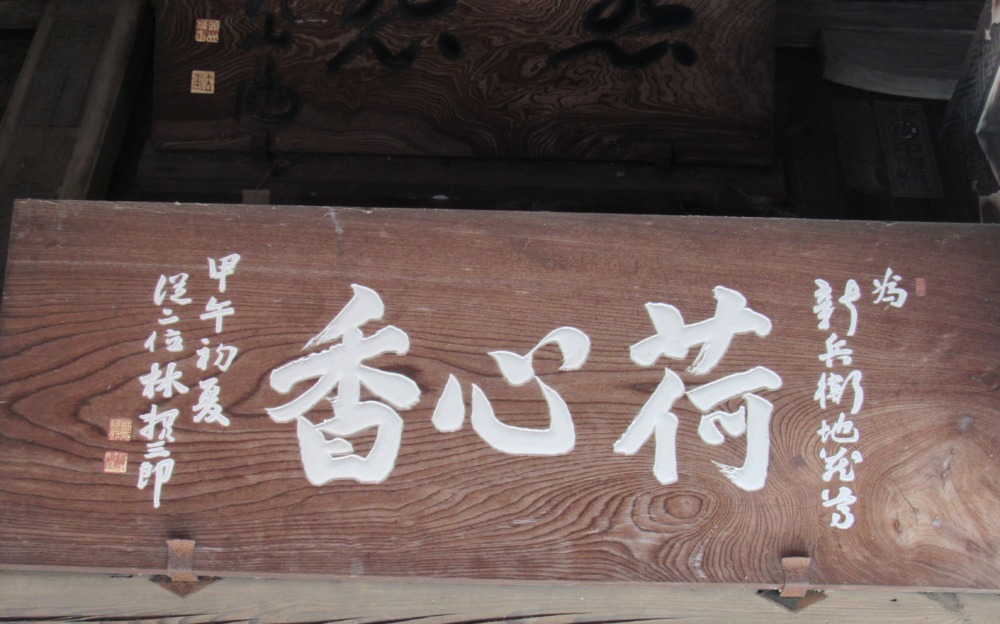 為
新兵衛地蔵尊
荷心香
甲午初夏
従二位林頼三郎